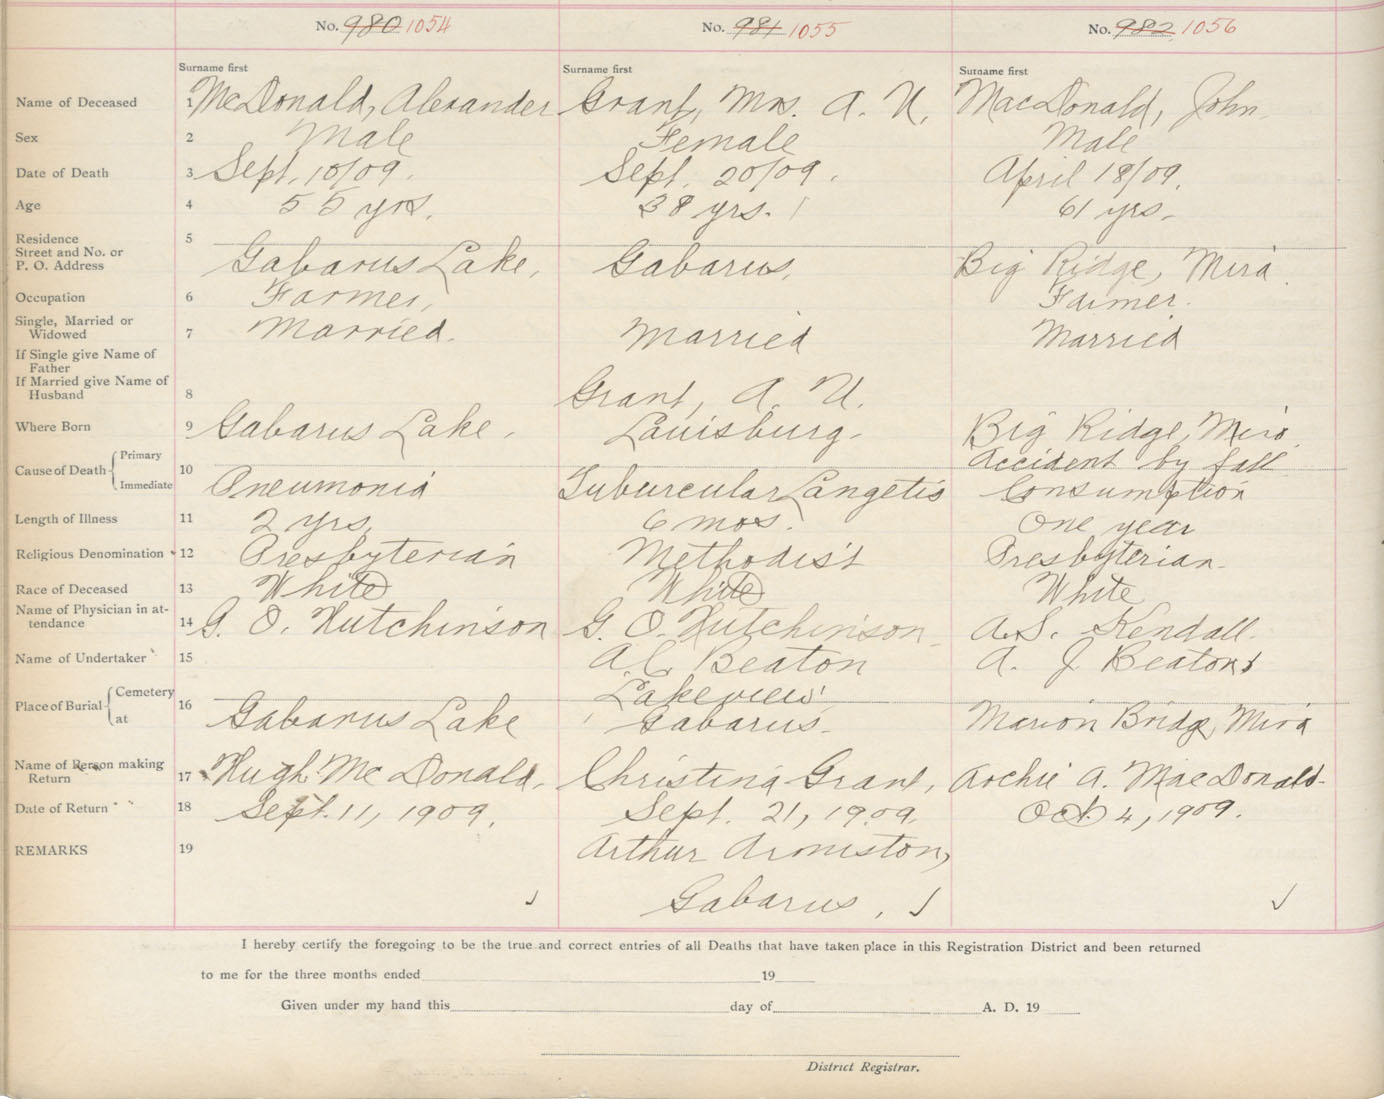 No. 980 1054 No. 981 1055 No. 982 1056
Surname first Surname first Surname first
Name of Deceased 1 McDonald, Alexander Grant, Mrs. A. N. MacDonald, John
Sex 2 Male Female Male
Date of Death 3 Sept. 10/09. Sept. 20/09. April 18/09.
Age 4 55 yrs. 38 yrs. 61 yrs.
Residence 5
Street and No. or
P. O. Address Gabarus Lake, Gabarus, Big Ridge, Mira
Occupation 6 Farmer, Farmer.
Single, Married or
Widowed 7 Married. Married Married
If Single give Name of
Father
If Married give Name of
Husband 8 Grant, A. N.
Where Born 9 Gabarus Lake. Louisburg. Big Ridge, Mira
Cause of Death Primary 10 Accident by fall
Immediate Pneumonia Tuburcular Langetis Consumption
Length of Illness 11 2 yrs, 6 mos. One year
Religious Denomination 12 Presbyterian Methodist Presbyterian
Race of Deceased 13 White White White
Name of Physician in at-
tendance 14 G. O. Hutchinson G. O. Hutchinson A.S. Kendall.
Name of Undertaker 15 A C Beaton A. J. Beaton
Place of Burial Cemetery 16 Lakeview
at Gabarus Lake Gabarus. Marion Bridge, Mira
Name of Person making
Return 17 Hugh McDonald, Christina Grant, Archie A. MacDonald
Date of Return 18 Sept. 11, 1909. Sept. 21, 1909. Oct 4, 1909.
REMARKS 19 Arthur Armiston,
Gabarus,
I hereby certify the foregoing to be the true and correct entries of all Deaths that have taken place in this Registration District and been returned
to me for the three months ended 19
Given under my hand this day of A. D. 19
District Registrar.